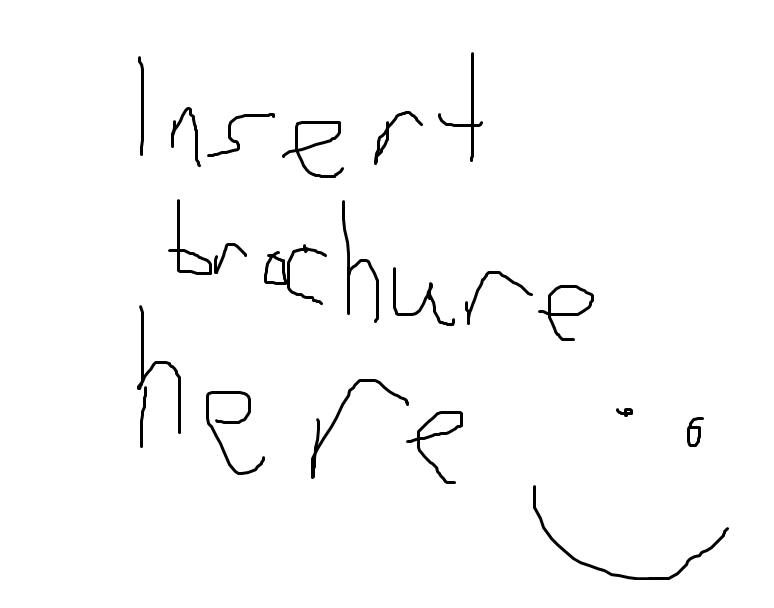 Insert
brochure
here